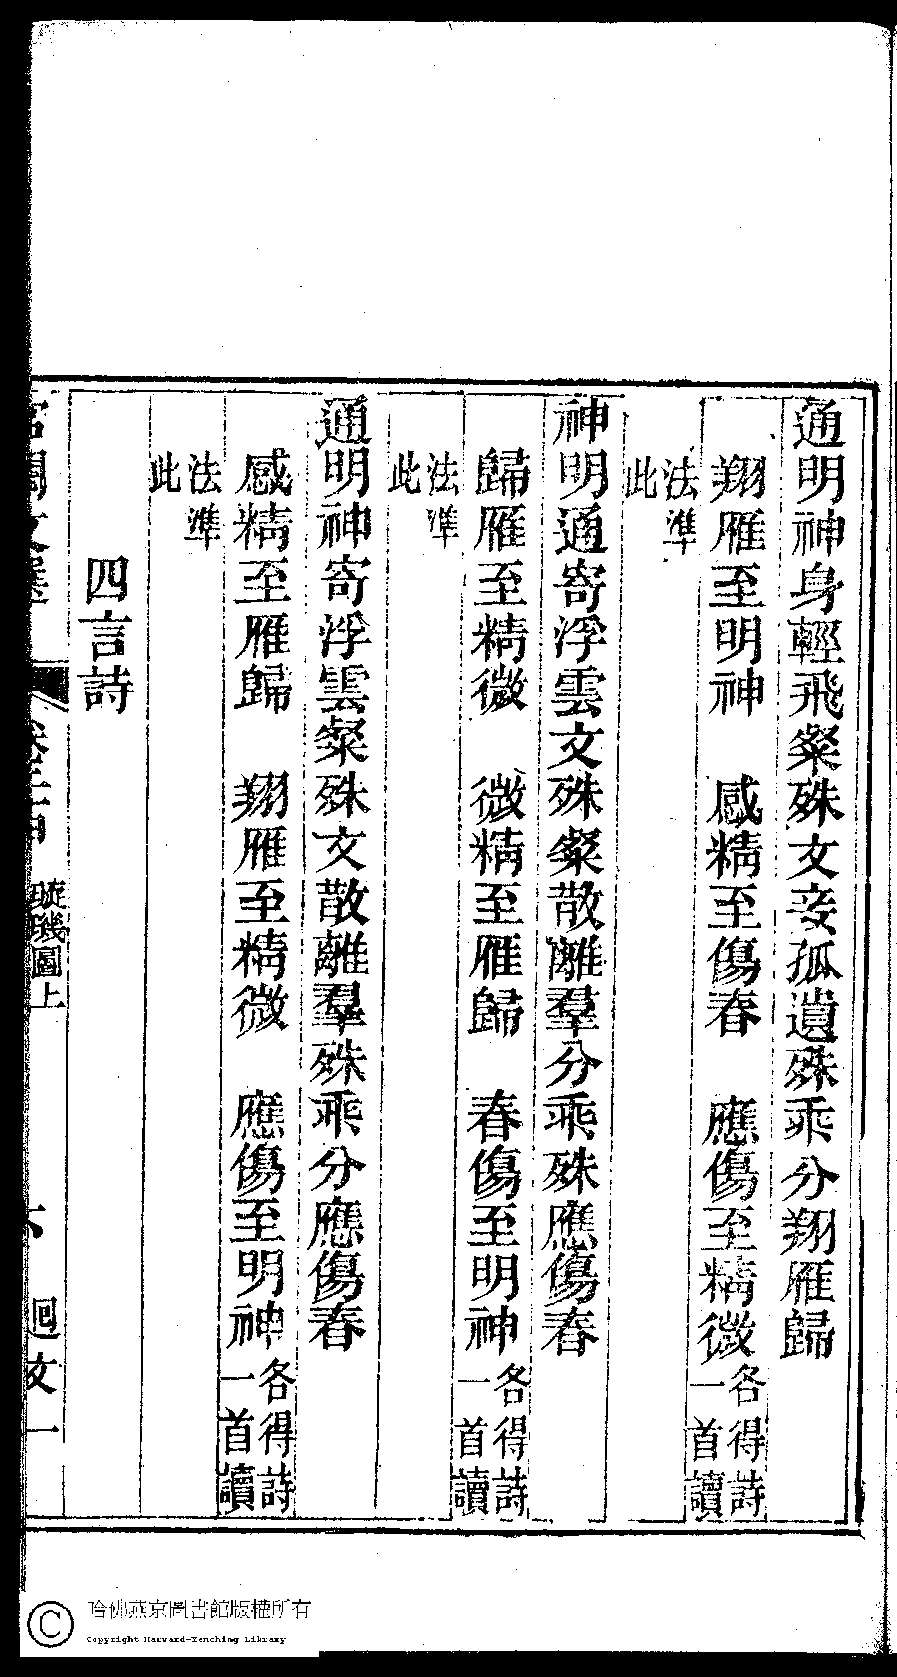 通明神身輕飛粲殊文妾孤遺殊乖分翔雁歸
翔雁至明神　感精至傷春　應傷至精微各得詩一首讀
法準此
神明通寄浮雲文殊粲散離羣分乖殊應傷春
歸雁至精微　微精至雁歸　春傷至明神各得詩一首讀
法準此
通明神寄浮雲粲殊文散離羣殊乖分應傷春
感精至雁歸　翔雁至精微　應傷至明神各得詩一首讀
法準此
四言詩
璇璣圖上
迴文一
哈佛燕京圖書館版權所有
Copyright Harvard-Yenching Library